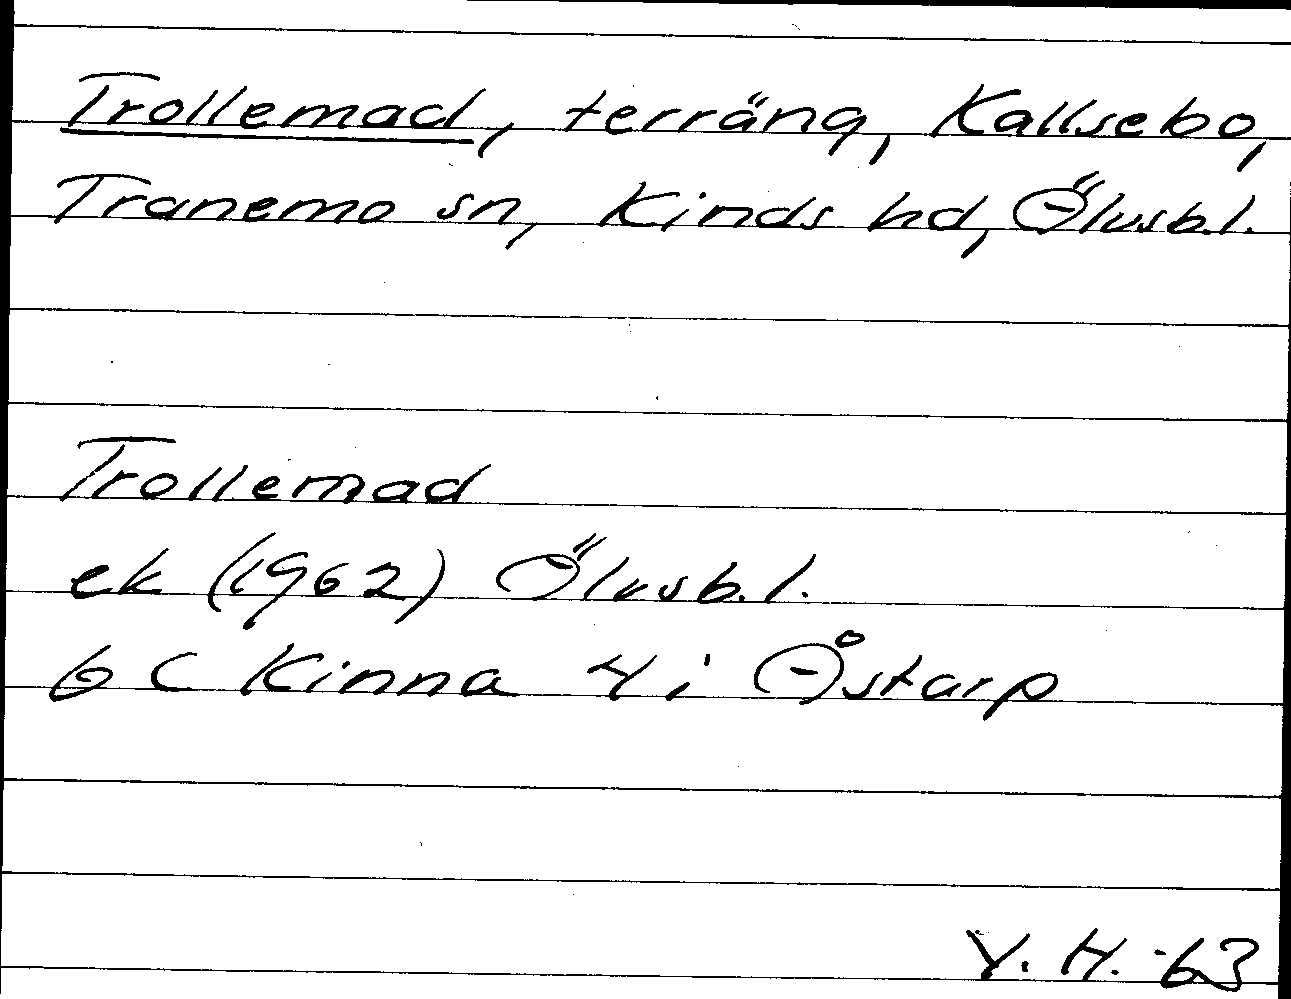 Trollemad, terräng, Kallsebo,
Tranemo sn, Kinds hd, Älvsb.l.
Trollemad
ek (1962) Älvsb.l.
6 C Kinna 4 i Åstarp
Y. H. -63